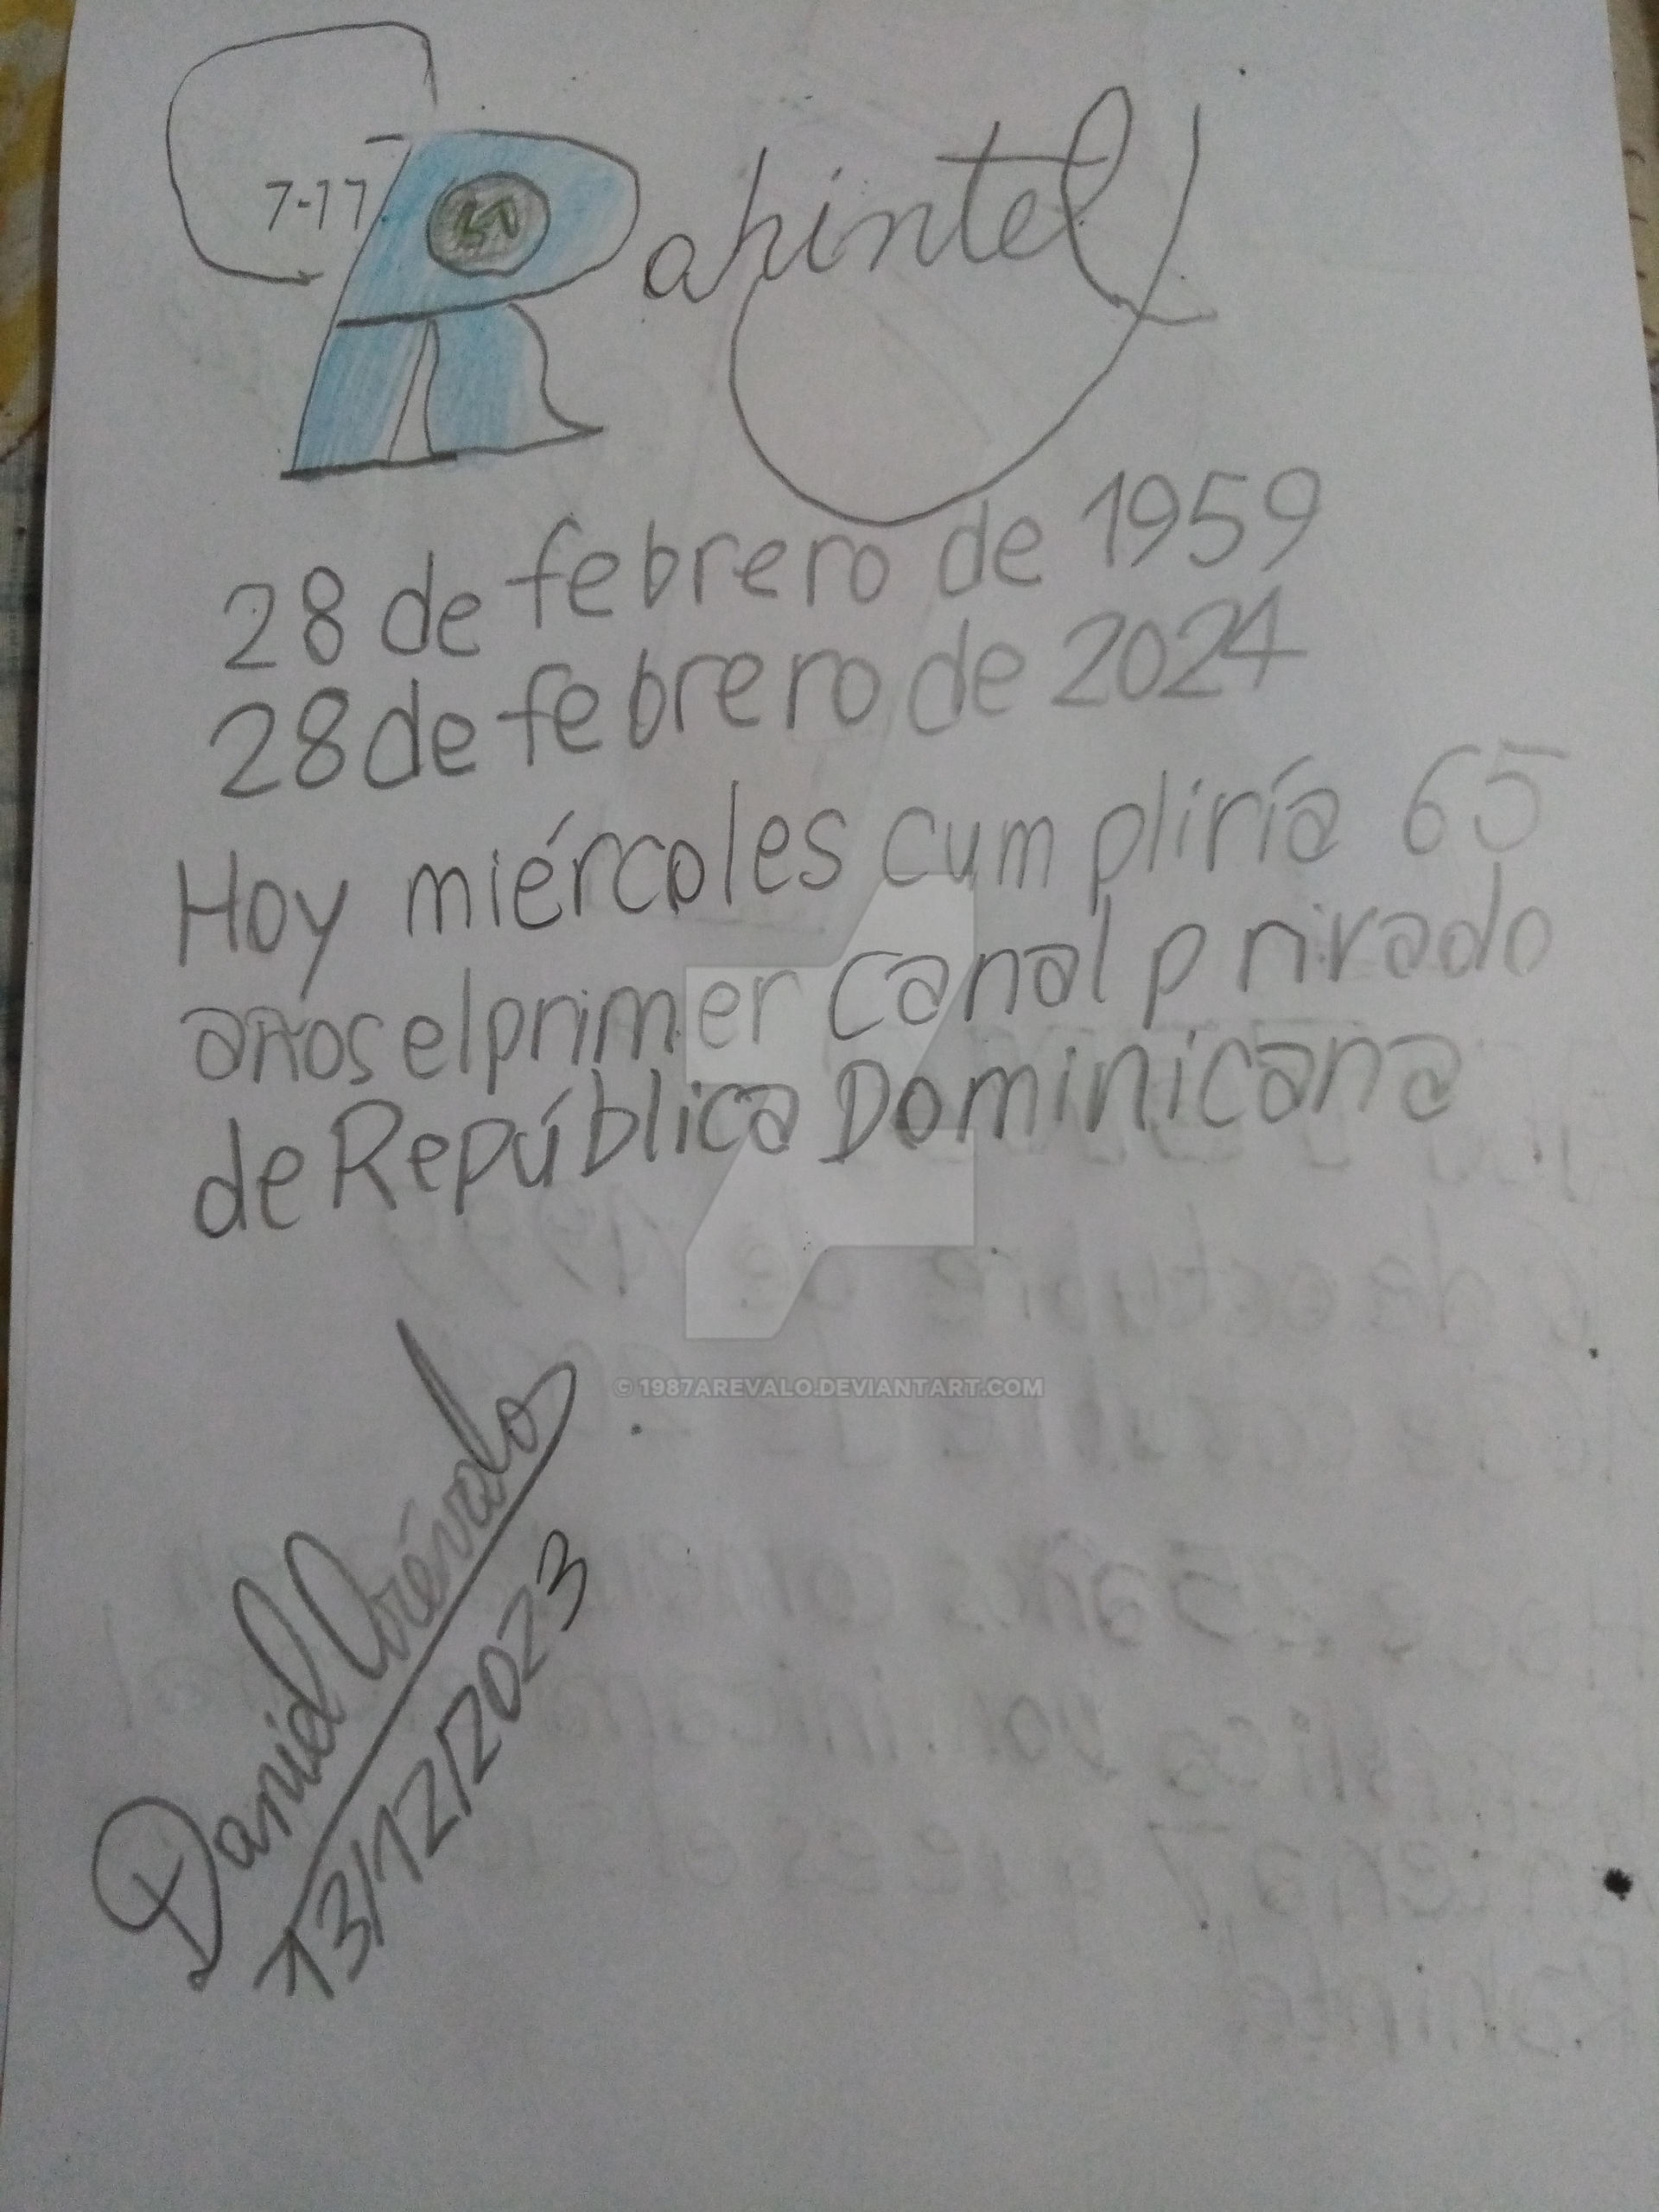 7-11
Rahintel
28 de febrero de 1959
28 de febrero de 2024
Hoy miércoles cumpliría 65
años el primer canal privado
de República Dominicana
© 1987AREVALO.DEVIANTART.COM
Daniel Arévalo
13/12/2023